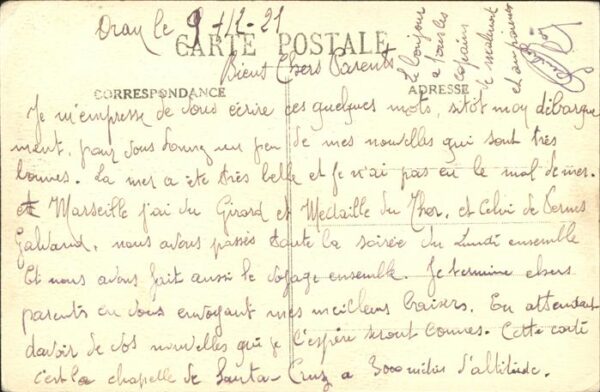 Oran le 9-12-21
CARTE POSTALE
Biens Chers Parents
CORRESPONDANCE
ADRESSE
Je m'empresse de vous écrire ces quelques mots, sitôt mon débarque
ment, pour vous donnez un peu de mes nouvelles qui sont très
bonnes. La mer a été très belle et Je n'ai pas eu le mal de mer.
Marseille j'ai vu Girard et Médaille du Thor, et celui de Pernes
Galvaud, nous avons passés toute la soirée du Lundi ensemble
Et nous avons fait aussi le voyage ensemble. Je termine chers
parents en vous envoyant mes meilleurs baisers. En attendant
davoir de vos nouvelles que je l'espère seront bonnes. Cette carte
c'est la chapelle de Santa-Cruz a 3000 mètres d'altitude.
Le bonjour
a tous les
copains